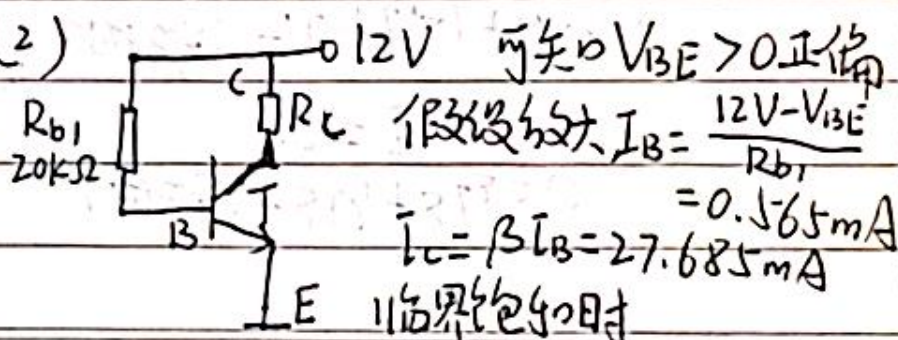 2)
12V 可知VBE>0正偏
C
Rb1
20kΩ
Rc
假设放大 IB=12V-VBE/Rb1
=0.565mA
T
B
Ic=βIB=27.685mA
E 临界饱和时